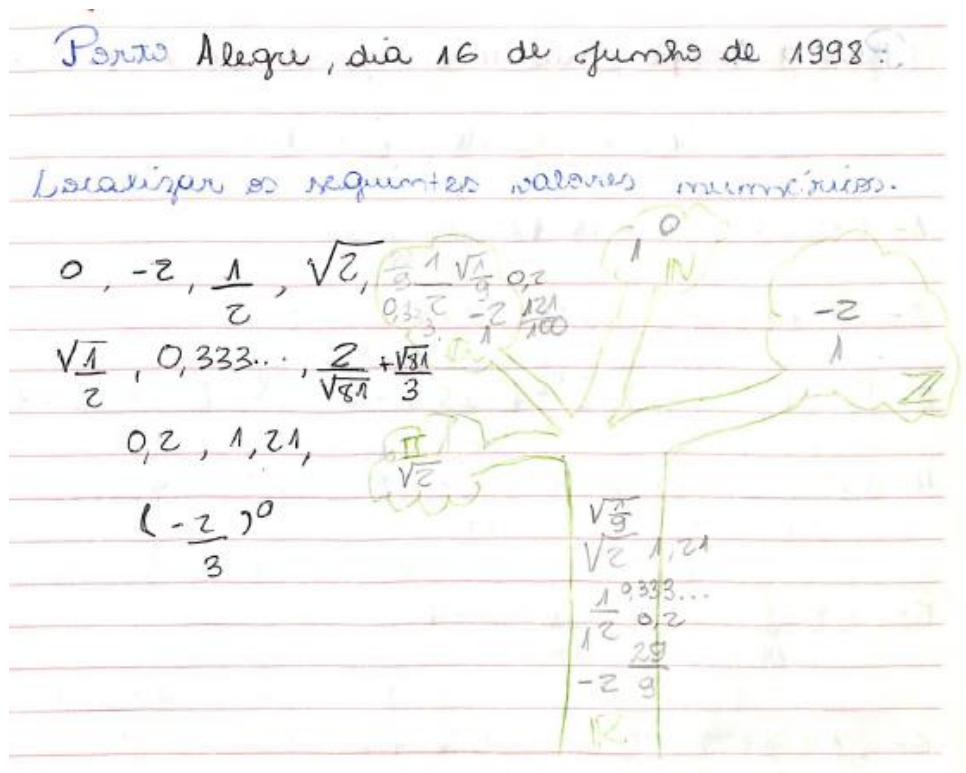 Porto Alegre, dia 16 de junho de 1998.
Localizar os seguintes valores numéricos.
0, -2, 1/2, √2,
√1/2, 0,333..., 2/√81 + √81/3
0,2, 1,21,
(-2/3)^0
1/2 √1/9 0,2
0,3.. -2 121/100
3 1
0
1 IN
-2
1
Z
II
√2
√1/9
√2 1,21
1/2 0,333...
1 0,2
-2 29/9
IR